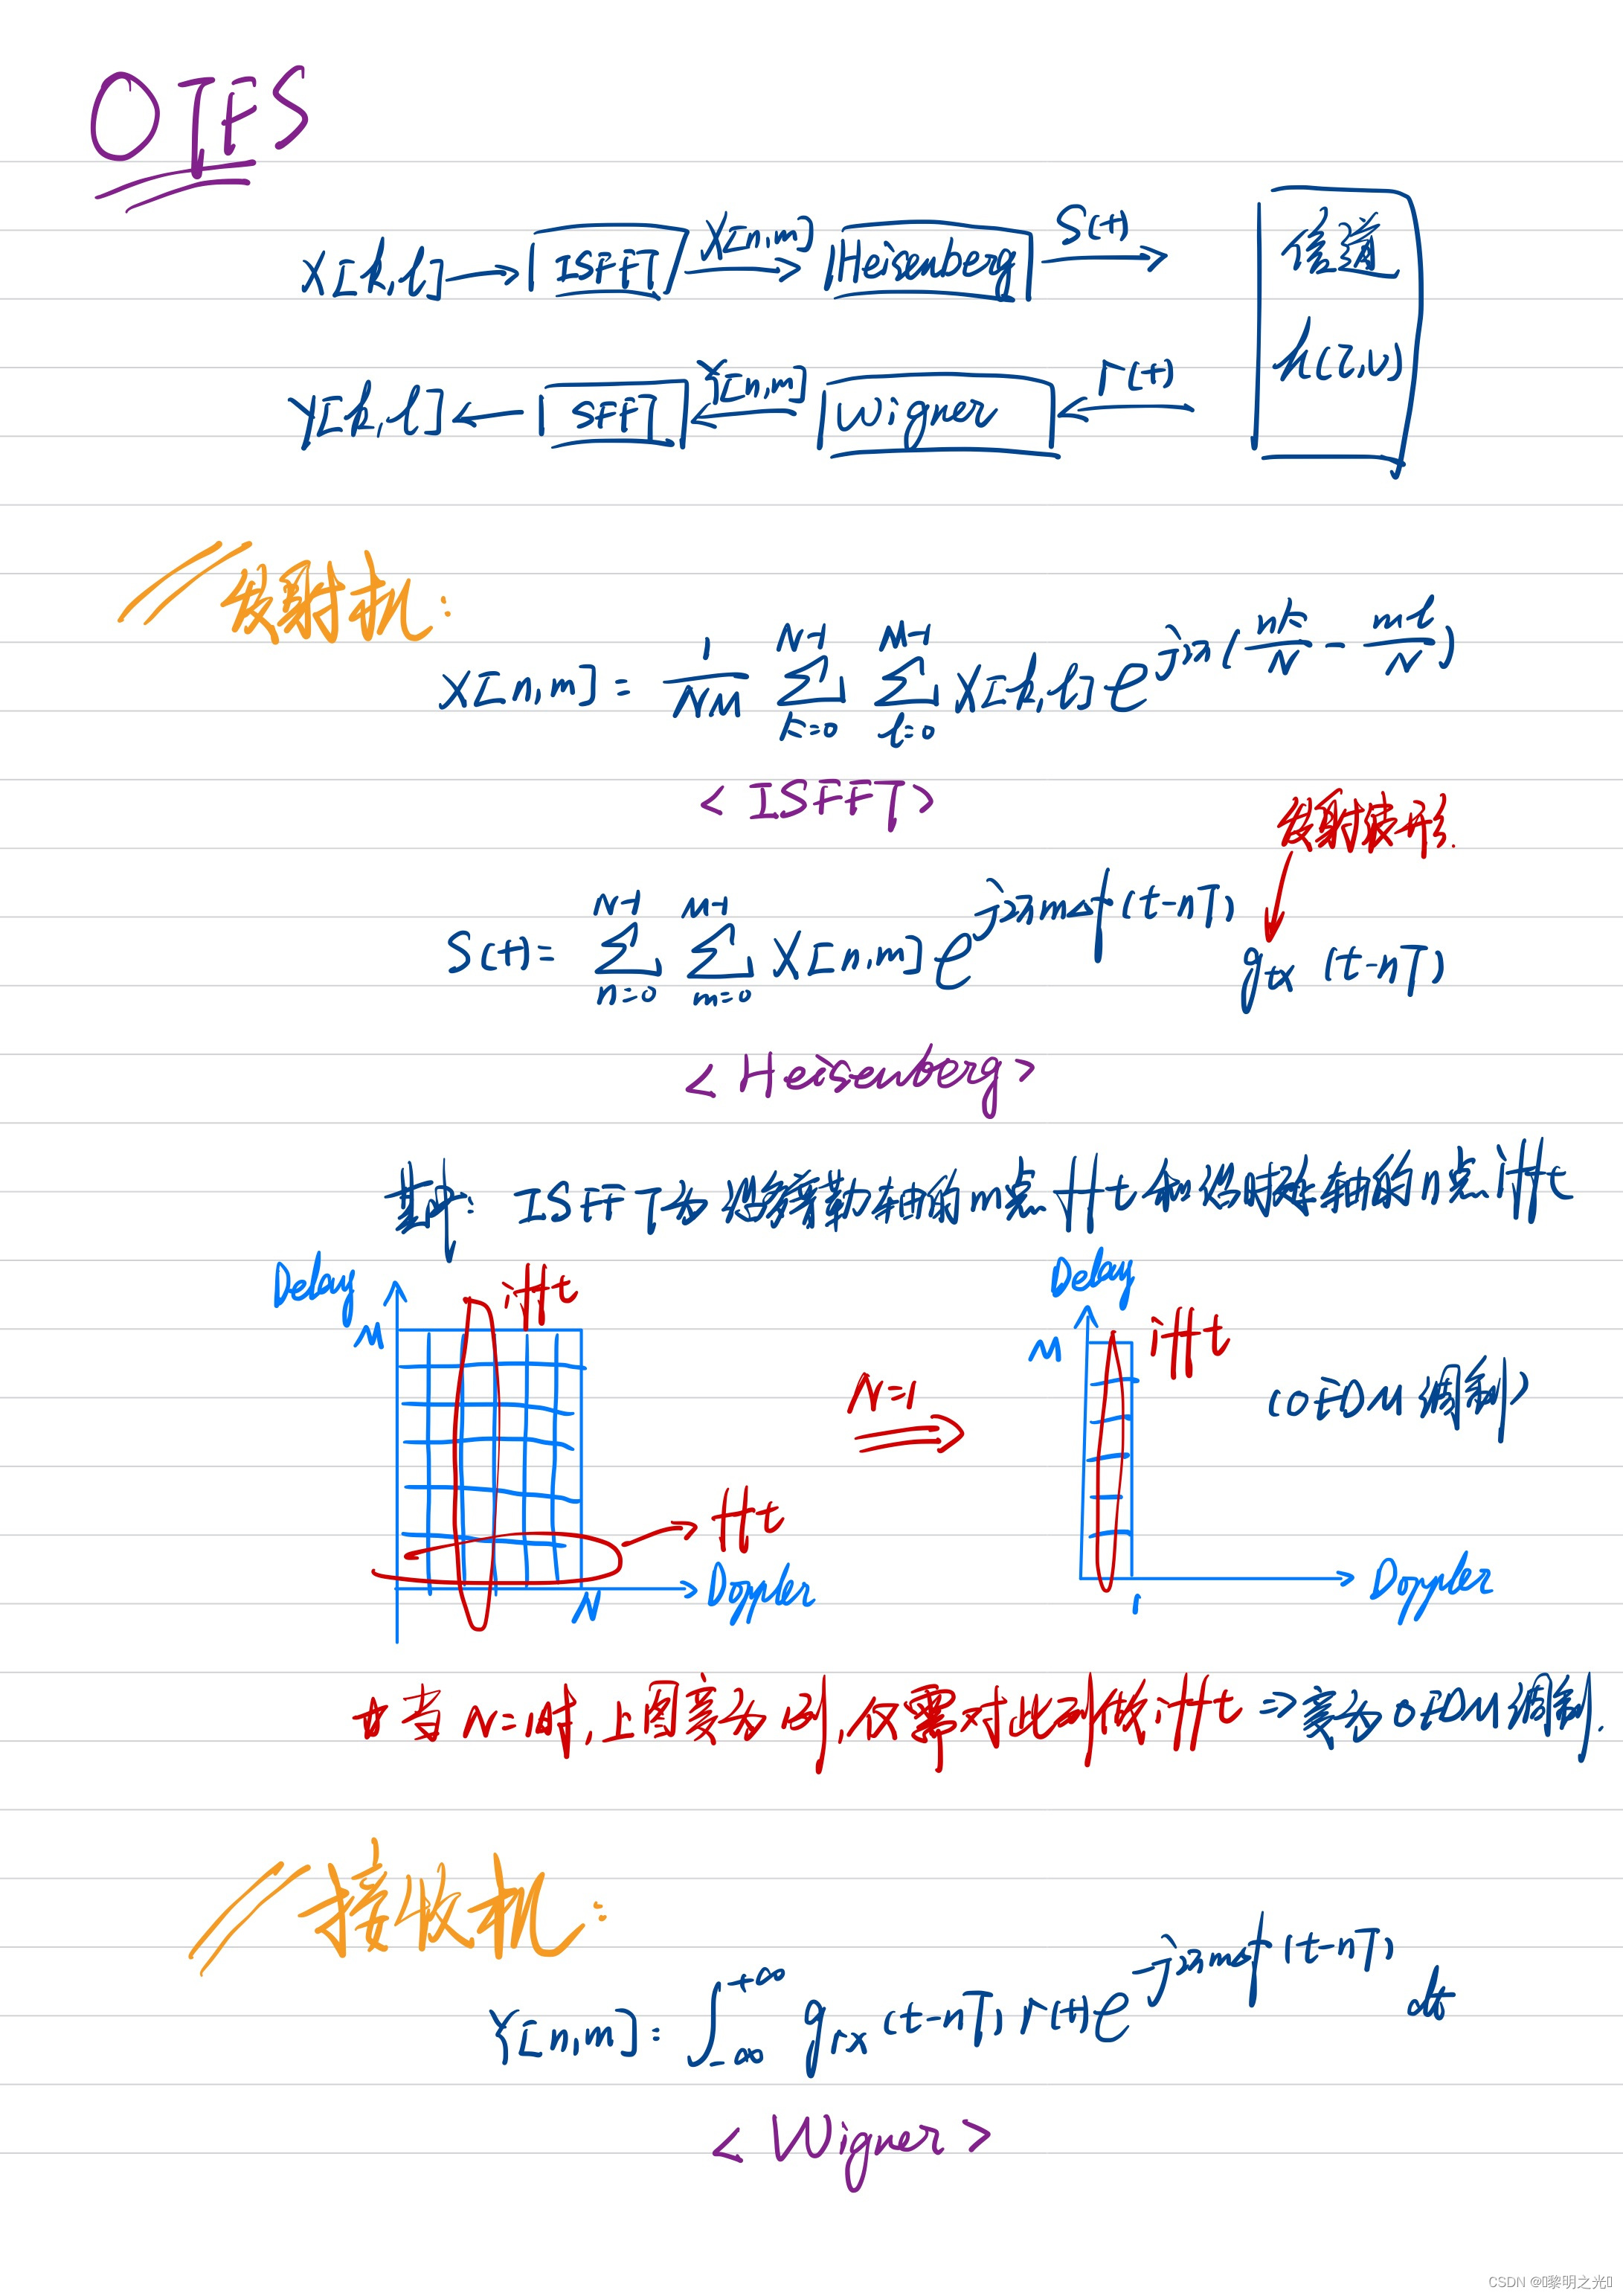 OTFS
X[k,l] → ISFFT X[n,m] → Heisenberg S(t) → 信道
h(τ,ν)
Y[k,l] ← SFFT Y[n,m] ← Wigner r(t) ←
发射机:
X[n,m] = 1/NM ∑_{k=0}^{N-1} ∑_{l=0}^{M-1} X[k,l] e^{j2π(nk/N - ml/N)}
<ISFFT>
发射波形.
S(t) = ∑_{n=0}^{N-1} ∑_{m=0}^{M-1} X[n,m] e^{j2πmΔf(t-nT)} g_tx (t-nT)
<Heisenberg>
其中: ISFFT为沿多普勒轴的m点fft和沿时延轴的n点ifft
Delay
M
ifft
fft
N
Doppler
N=1
Delay
M
ifft
(OFDM调制)
1
Doppler
当N=1时,上图变为1列,仅需对此列做ifft ⇒变为OFDM调制.
接收机:
Y[n,m] = ∫_{-∞}^{+∞} g_rx (t-nT) r(t) e^{-j2πmΔf(t-nT)} dt
<Wigner>
CSDN @黎明之光